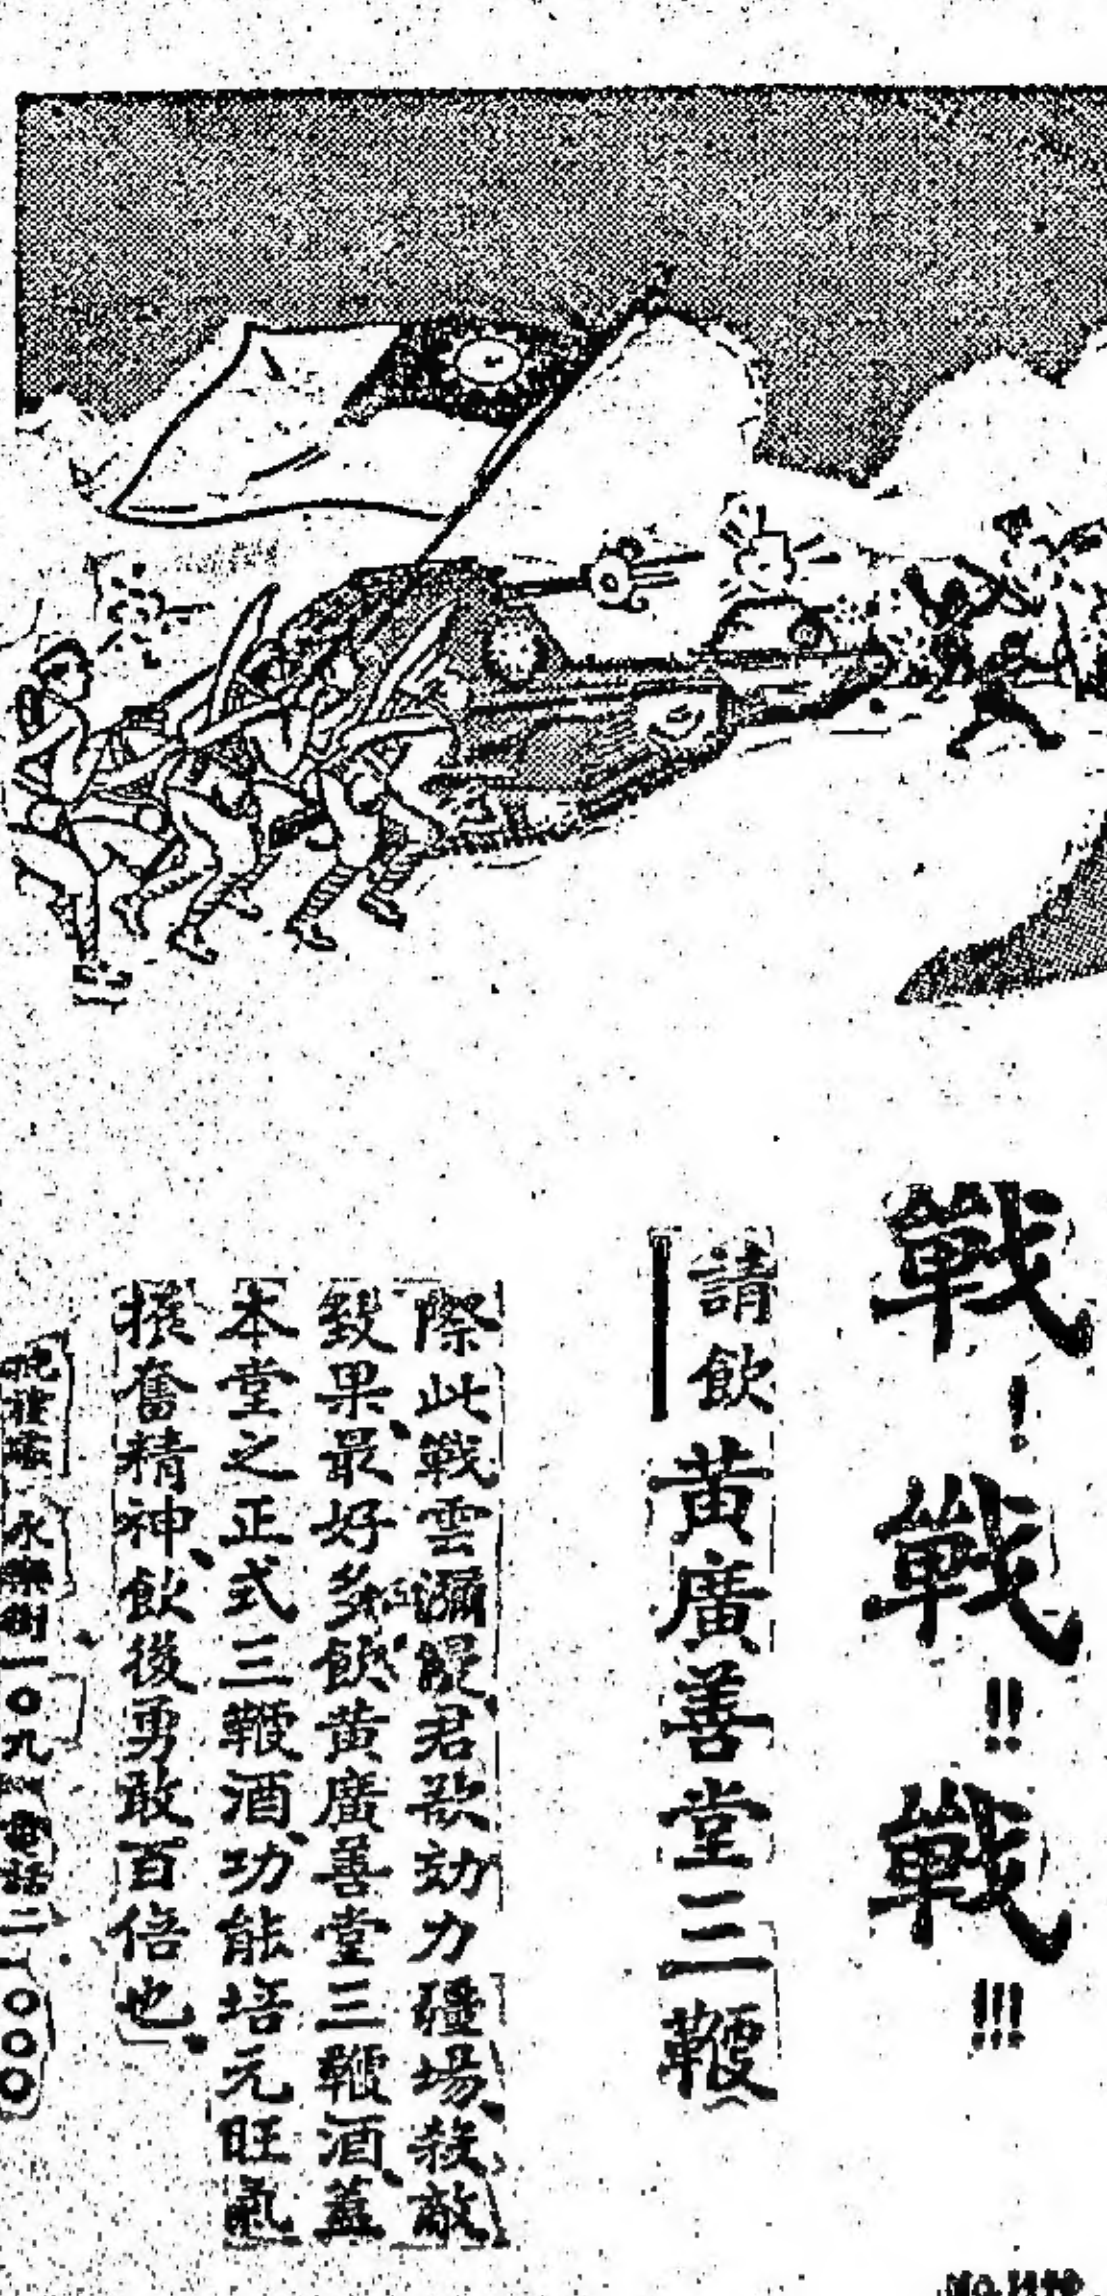 戰！戰！！戰！！！
請飲黃廣善堂三鞭
際此戰雲瀰漫、君欲効力疆場、殺敵
致果、最好多飲黃廣善堂三鞭酒、蓋
本堂之正式三鞭酒、功能培元旺氣
振奮精神、飲後勇敢百倍也、
永樂街一〇九 電話二一〇〇〇